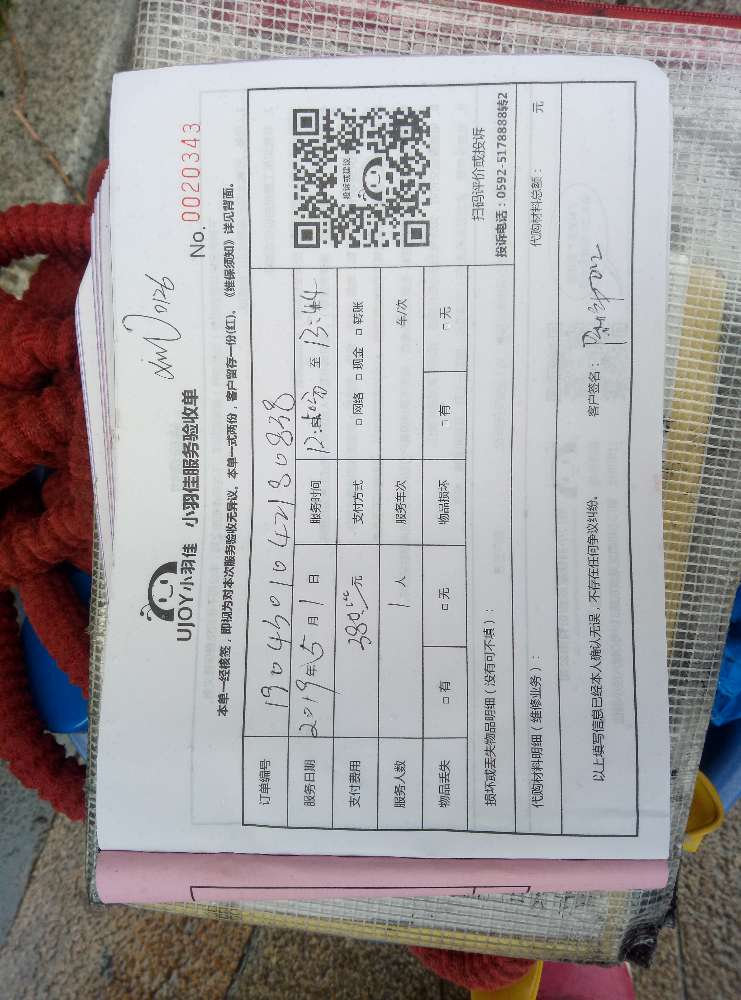 No. 0020343
UJOY小羽佳 小羽佳服务验收单
本单一经核签，即视为对本次服务验收无异议。本单一式两份，客户留存一份(红)。《维保须知》详见背面。
订单编号 19043010421830838
服务日期 2019年5月1日 服务时间 至 13:44
支付费用 380元 支付方式 □网络 □现金 □转账
服务人数 1人 服务车次 车/次
物品丢失 □有 □无 物品损坏 □有 □无
投诉或建议
扫码评价或投诉
投诉电话：0592-5178888转2
损坏或丢失物品明细（没有可不填）：
代购材料明细（维修业务）： 代购材料总额： 元
以上填写信息已经本人确认无误，不存在任何争议纠纷。 客户签名：